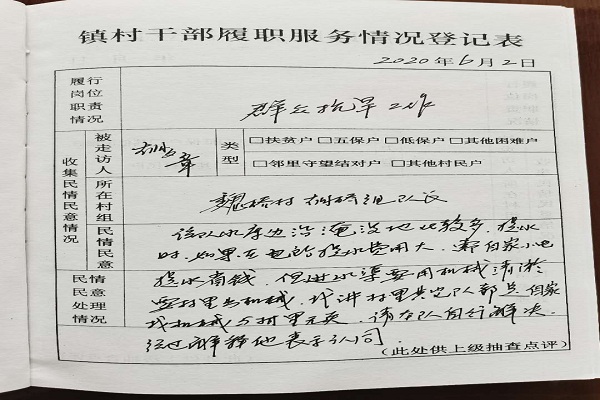 镇村干部履职服务情况登记表
2020年6月2日
履行岗位职责情况
群众抗旱工作
收集民情民意情况
被走访人
章
类型
□扶贫户 □五保户 □低保户 □其他困难户
□邻里守望结对户 □其他村民户
所在村组
魏桥村 组队长
民情民意
该队水库边沿淹没地比较多，提水
时，如果在电站提水费用大，都自家小电
民情民意处理情况
提水商钱，但进水渠要用机械清淤
要村里出机械，我讲村里其它队都是自家
找机械与村里无关，请在队自行解决
经过解释他表示认同
（此处供上级抽查点评）